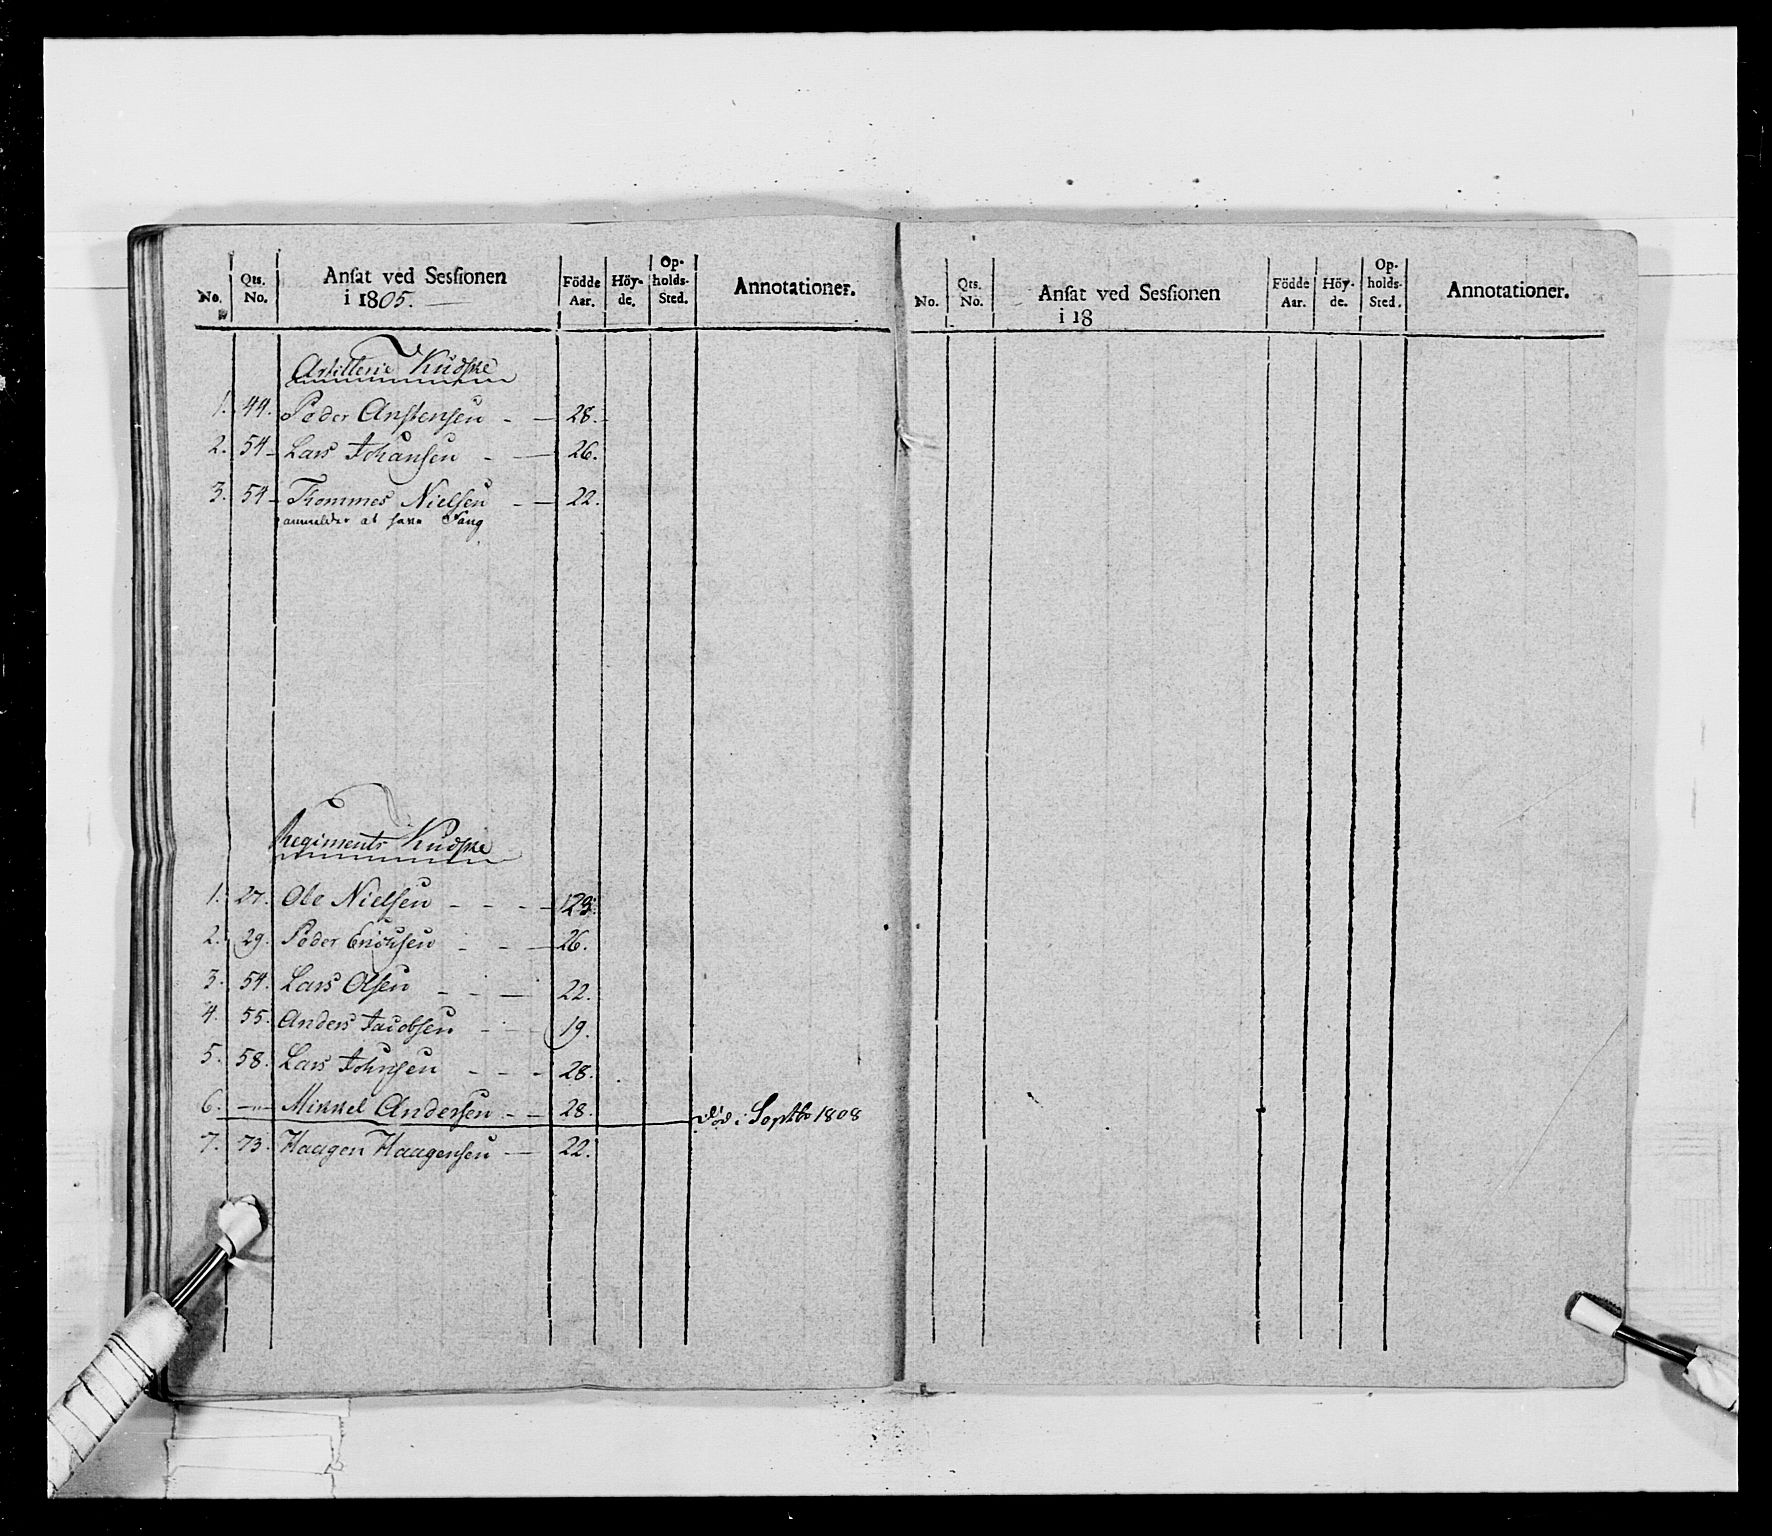 No. Qts. No. Ansat ved Sessionen i 1805. Födde Aar. Höyde. Opholds-Sted. Annotationer.
Artillerie Kudske
1. 44. Peder Anstensen - — 28.
2. 54 Lars Johansen - — 26.
3. 54 Thommes Nielsen - — 22.
anmelder at have
Regiments Kudske
1. 27. Ole Nielsen - - - 23.
2. 29. Peder Erichsen - - — 26.
3. 54. Lars Olsen - - — 22.
4. 55. Anders Jacobsen - - 19.
5. 58. Lars Johnsen - - - 28.
6. — Mikkel Andersen - — 28. död i Septbr 1808
7. 73. Haagen Haagensen - — 22.
No. Qts. No. Ansat ved Sessionen i 18 Födde Aar. Höy-de. Op-holds-Sted. Annotationer.